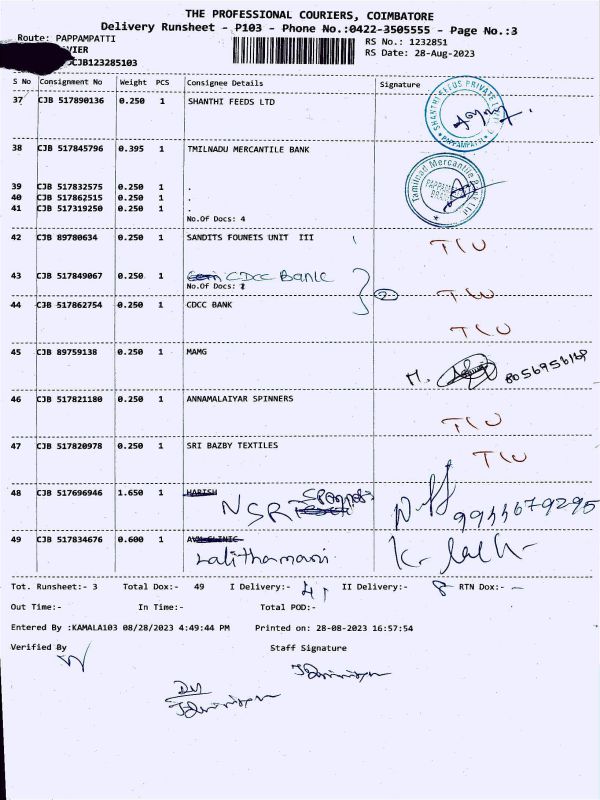 THE PROFESSIONAL COURIERS, COIMBATORE
Delivery Runsheet - P103 - Phone No.:0422-3505555 - Page No.:3
Route: PAPPAMPATTI
RS No.: 1232851
VIER
RS Date: 28-Aug-2023
CJB123285103
S No Consignment No Weight PCS Consignee Details Signature
37 CJB 517890136 0.250 1 SHANTHI FEEDS LTD
SHANTHI FEEDS PRIVATE LIMITED PAPPAMPATTI
38 CJB 517845796 0.395 1 TMILNADU MERCANTILE BANK
Tamilnad Mercantile Bank Ltd
39 CJB 517832575 0.250 1 .
40 CJB 517862515 0.250 1 .
41 CJB 517319250 0.250 1 .
No.Of Docs: 4
42 CJB 89780634 0.250 1 SANDITS FOUNEIS UNIT III
43 CJB 517849067 0.250 1 CDCC Bank
No.Of Docs: 2
44 CJB 517862754 0.250 1 CDCC BANK
45 CJB 89759138 0.250 1 MAMG
46 CJB 517821180 0.250 1 ANNAMALAIYAR SPINNERS
47 CJB 517820978 0.250 1 SRI BAZBY TEXTILES
48 CJB 517696946 1.650 1 HARISH
NSR
49 CJB 517834676 0.600 1 AVM CLINIC
Lalithamani
Tot. Runsheet:- 3 Total Dox:- 49 I Delivery:- 41 II Delivery:- 8 RTN Dox:- -
Out Time:- In Time:- Total POD:-
Entered By :KAMALA103 08/28/2023 4:49:44 PM Printed on: 28-08-2023 16:57:54
Verified By Staff Signature